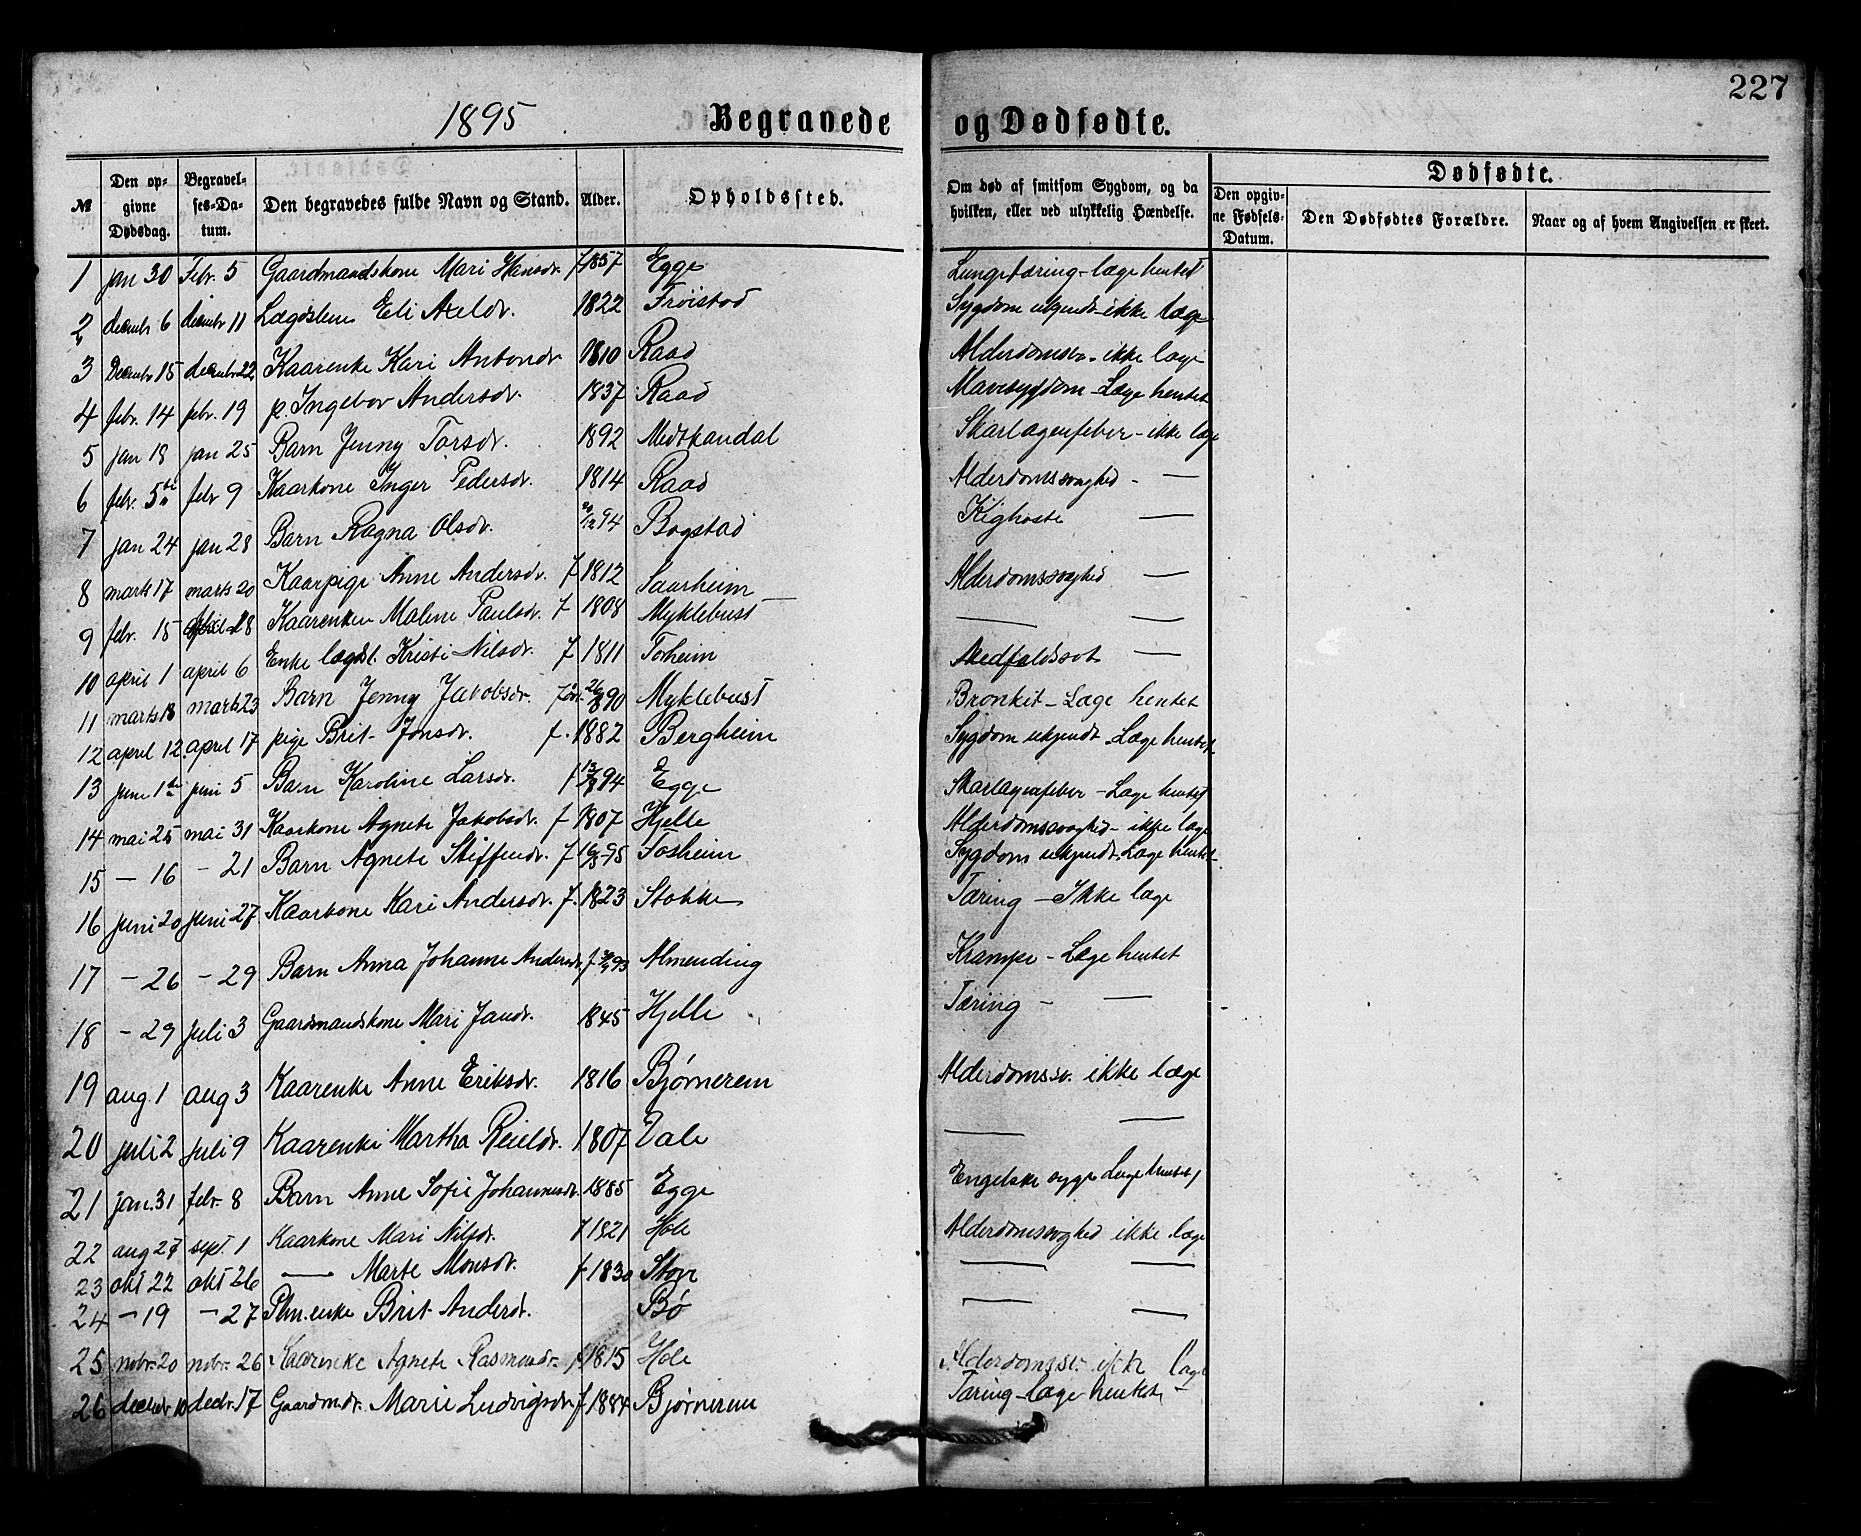 227
1895 Begravede og Dødfødte.
№ Den opgivne Dødsdag. Begravelses-Datum. Den begravedes fulde Navn og Stand. Alder. Opholdssted. Om død af smitsom Sygdom, og da hvilken, eller ved ulykkelig Hændelse. Dødfødte.
Den opgivne Fødsels-Datum. Den Dødfødtes Forældre. Naar og af hvem Angivelsen er skeet.
1 jan 30 Febr. 5 Gaardmandskone Mari Hansdr. f 1857 Egge Lungetæring - læge hentet
2 decmbr 6 decmbr 11 Lægdslem Eli Axeldr. 1822 Frøistad Sygdom ukjendt - ikke læge
3 Decmbr 15 decmbr 22 Kaarenke Kari Antondr 1810 Raad Alderdomssv. - ikke læge
4 febr. 14 febr. 19 p. Ingebor Andersdr. 1837 Raad Mavesygdom - Læge hentet
5 jan 18 jan 25 Barn Jenny Torsdr. 1892 Medskandal Skarlagenfeber - ikke læge
6 febr. 5te febr 9 Kaarkone Inger Pedersdr. 1814 Raad Alderdomssvaghed - —
7 jan 24 jan 28 Barn Ragna Olsdr. /12 94 Bogstad Kighoste —
8 marts 17 marts 20 Kaarpige Anne Andersdr. f 1812 Saarheim Alderdomssvaghed —
9 febr. 15 18 Kaarenken Malene Paulsdr. f 1808 Myklebust — —
10 april 1 april 6 Enke lægdsl. Kristi Nilsdr. f 1811 Fosheim Medfaldssot —
11 marts 18 marts 23 Barn Jenny Jakobsdr. 26/8 90 Myklebust Bronkit - Læge hentet
12 april 12. april 17 pige Brit Jonsdr. f. 1882 Bergheim Sygdom ukjendt - Læge hentet
13 juni 1te juni 5 Barn Karoline Larsdr. f 13/8 94 Egge Skarlagenfeber - Læge hentet
14 mai 25 mai 31 Kaarkone Agnete Jakobsdr. f 1807 Hjelle Alderdomssvaghed - ikke læge
15 — 16 — 21 Barn Agnete Steffendr. f 16/3 95 Fosheim Sygdom ukjendt. Læge hentet
16 juni 20 juni 27 Kaarkone Kari Andersdr. f. 1823 Stokke Tæring - Ikke læge
17 — 26 — 29 Barn Anna Johanne Andersdr. f 93 Almending Krampe - Læge hentet
18 — 29 juli 3 Gaardmandskone Mari Jansdr. 1845 Hjelle Tæring - —
19 aug 1 aug 3 Kaarenke Anne Eriksdr. 1816 Bjørnerem Alderdomssv. ikke læge
20 juli 2 juli 9 Kaarenke Martha Reieldr. 1807 Vale — —
21 jan. 31 febr. 8 Barn Anne Sofie Johannesdr. 1885 Egge Engelske syge Læge hentet
22 aug 27 sept. 1 Kaarkone Mari Nilsdr. f 1821 Hole Alderdomssvaghed ikke læge
23 okt 22 okt 26 — Marte Monsdr. f 1830 Støve — —
24 — 19 — 27 Plm. enke Brit Andersdr. Bø — —
25 novbr. 20 novbr. 26 Kaarenke Agnete Rasmusdr. f 1815 Hole Alderdomssv. ikke læge
26 decbr 10 decbr. 17 Gaardmdr. Marie Ludvigsdr. f 1884 Bjørnerem Tæring - læge hentet